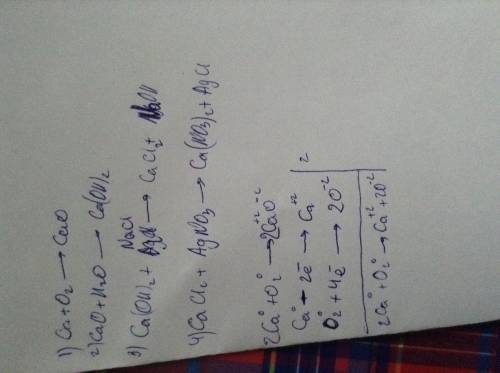 1) Ca + O₂ → CaO
2) CaO + H₂O → Ca(OH)₂
NaCl
3) Ca(OH)₂ + → CaCl₂ + NaOH
4) CaCl₂ + AgNO₃ → Ca(NO₃)₂ + AgCl
2Ca⁰ + O₂⁰ → 2Ca⁺²O⁻²
Ca⁰ - 2ē → Ca⁺² | 2
O₂⁰ + 4ē → 2O⁻²
2Ca⁰ + O₂⁰ → Ca⁺² + 2O⁻²